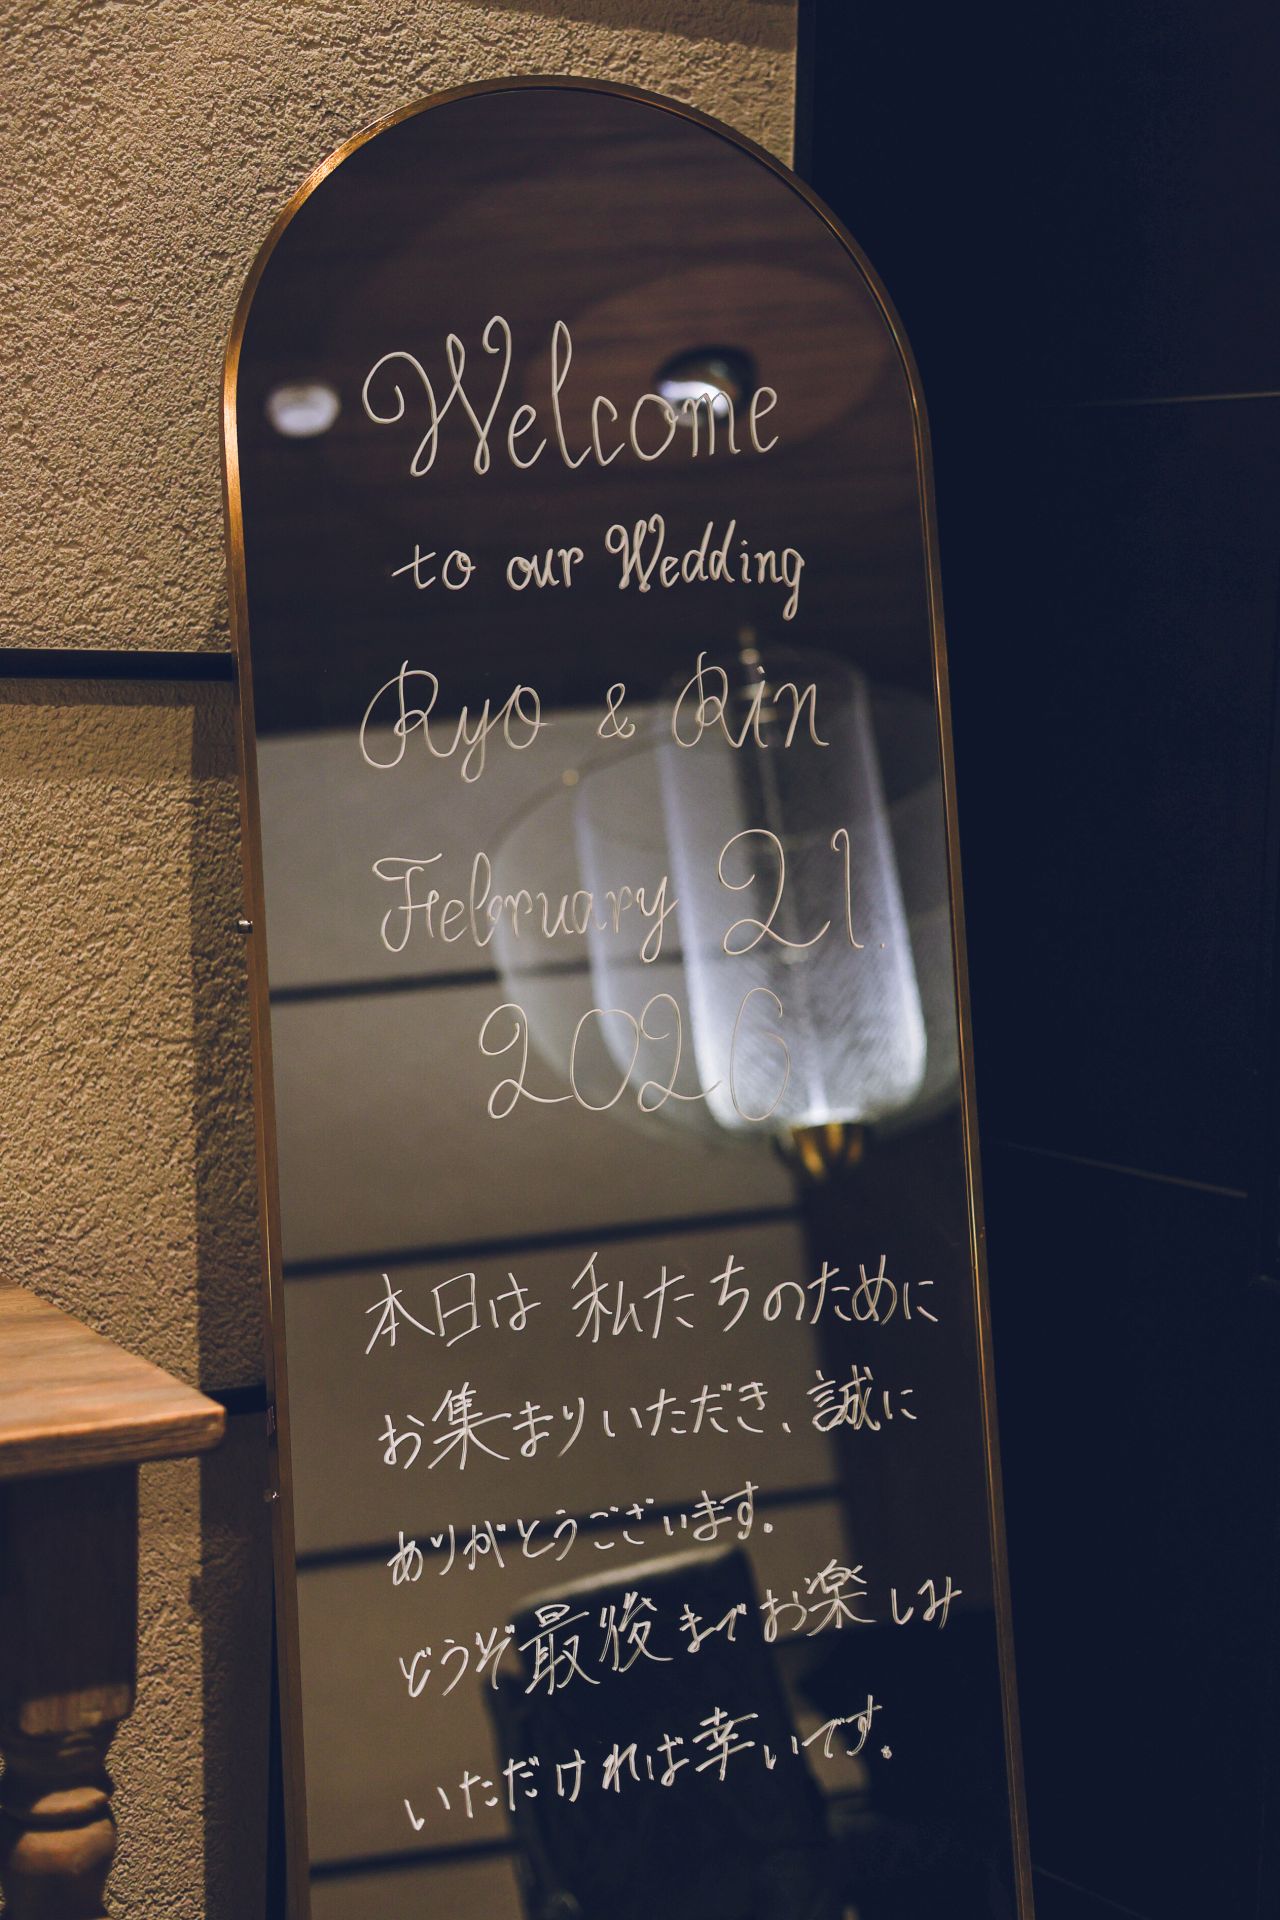 Welcome
to our Wedding
Ryo & Rin
February 21.
2026
本日は 私たちのために
お集まりいただき、誠に
ありがとうございます。
どうぞ最後までお楽しみ
いただければ幸いです。